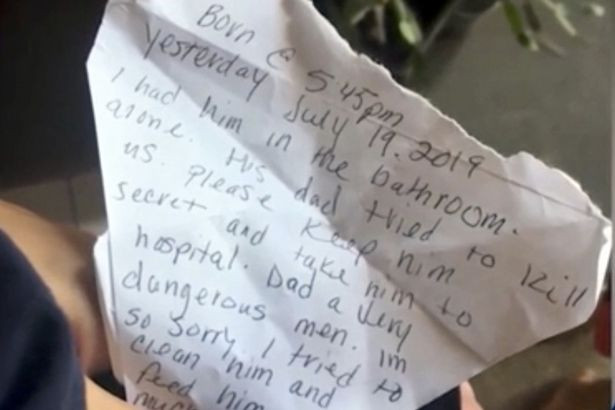 Born @ 5 45pm
Yesterday July 19. 2019
I had him in the bathroom.
alone. His dad tried to kill
us. please keep him
secret and take him to
hospital. Dad a very
dangerous men. Im
so sorry, I tried to
clean him and
feed him